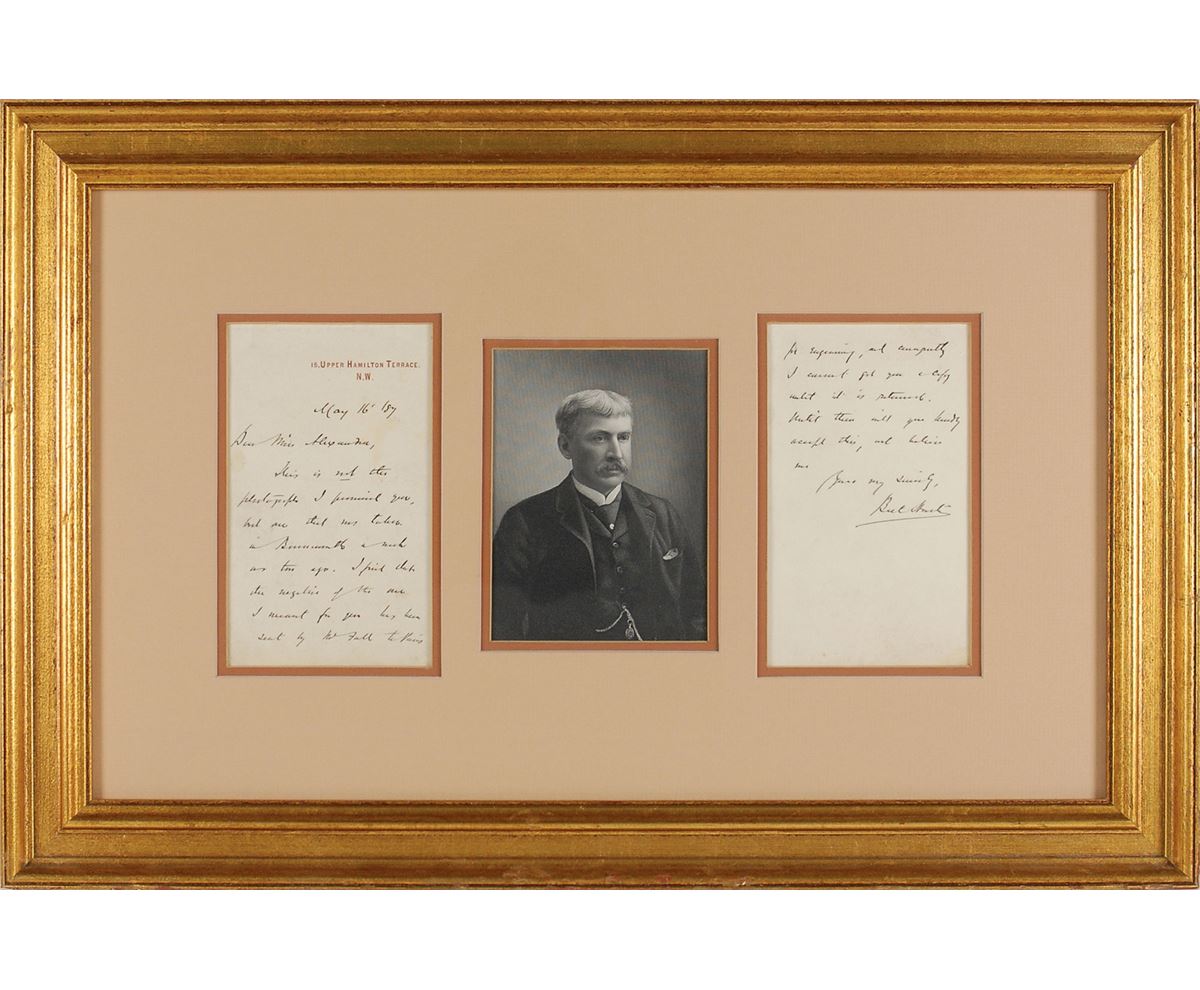 15, UPPER HAMILTON TERRACE.
N.W.
May 16 '87
Dear Miss Alexander,
This is not the
photograph I promised you,
but one that was taken
in Bournemouth a week
or two ago. I find that
the negative of the one
I meant for you has been
sent by Mr Fall to Paris
for engraving, and consequently
I cannot get you a copy
until it is returned.
Until then will you kindly
accept this, and believe
me
Yours very sincerely,
Bret Harte